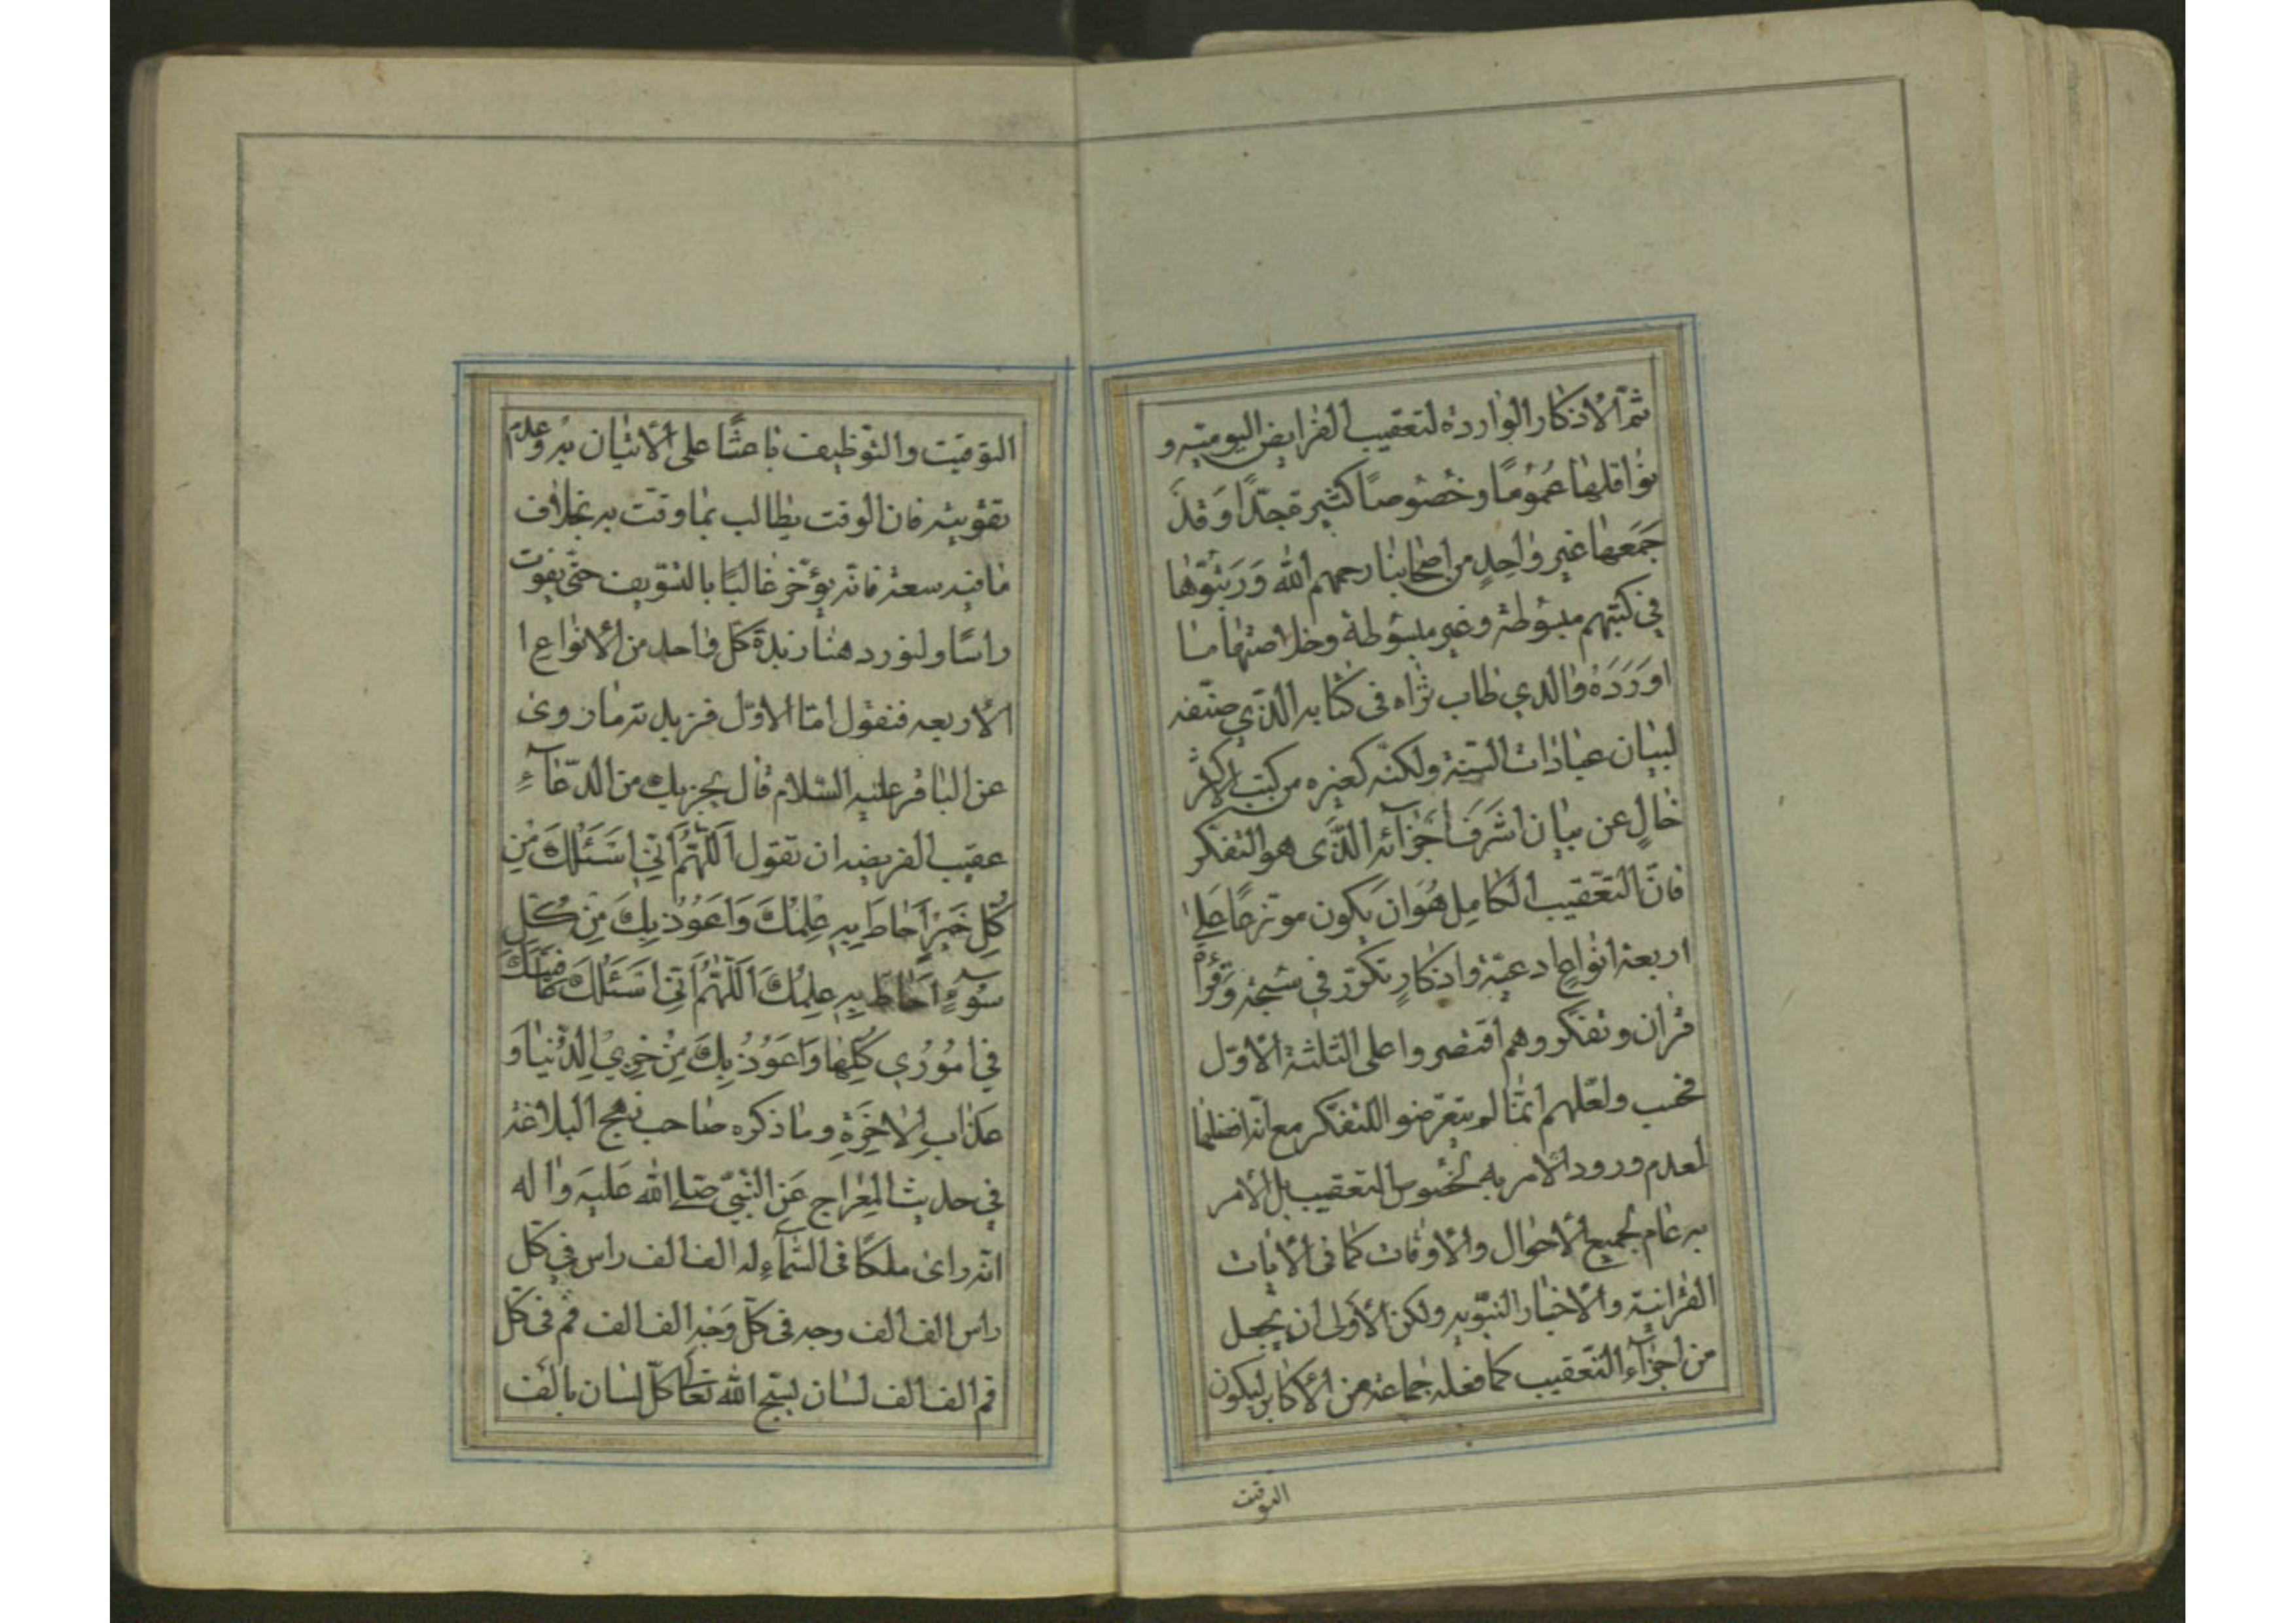 ثم الاذكار الواردة لتعقيب الفرايض اليوميه و
نوافلها عُمُومًا وخصُوصًا كثيرة جدًا وَقَد
جَمَعَها غير واحِدٍ من اصحابنا رحمهم الله وَرَتبُوّها
في كتبهم مبسُوطة وغير مبسُوطة وخلاصتها ما
اوَرَدَهُ والدي طاب ثراه فى كتابه الذي صنّفه
لبيان عبادات السنة ولكنه كغيره من كتب الاكثر
خالٍ عن بيان اشرَفَ اجَزآئه الذَّى هو التفكر
فانّ التعّقيب الكامِل هُوَان يكون موتزعًا عَلى
اربعة انواعٍ ادعيّة واذكارٍ تكرّر في سبحة وَقراة
قران وتفكر وهم اقتصروا على الثلثة الاوّل
فحسب ولعّلهم انمّا لم يتعرّضوا للتفكر مع انّه افضلها
لعدم ورود الامر به بخصُوص التعقيب بل الامر
به عام لجميع الاحوال والاوقات كما فى الايات
القرانية والاخبار النبّويه ولكن الاَولى ان يجعل
من اجزآء التعّقيب كما فعله جماعة من الاكابر ليكون
التوقيت
التوقيت والتوّظيف باعثًا على الاتيان به وعدم
تفويته فان الوقت يطالب بما وقت به بخلاف
ما فيه سعة فانه يؤخّر غالبًا بالتسّويف حتى يفوت
راسًا ولنورد هنا زبدة كل واحد من الانواع ا
الاربعه فنقول امّا الاوّل فزبدته ما روى
عن الباقر عليه السّلام قال يجزيك من الدّعآء
عقيب الفريضه ان تقول اَللّهُمَّ اَنّي اَسَئَلُكَ مِنْ
كُلِّ خَيْرٍ اَحاطَ بِهِ عِلْمُكَ وَاَعَوُذُ بِكَ مِنْ كُلِّ
سُوءٍ اَحاطَ بِهِ عِلمُكَ اَللّهُمَّ اَنّي اَسَئَلُكَ عافيَتَكَ
في امُوُرُي كُلِّها وَاَعَوُذُ بِكَ مِنْ خِزيْ الدُّنياَ وَ
عَذابِ الاخِرَةِ وما ذكره صاحب نهج البلاغة
في حديث المعِراج عَنِ النبّيّ صلى الله عَليهَ واله
انّه راى ملكًا فى السمآءِ له الف الف راس في كل
راس الف الف وجه فى كلّ وَجْه الف الف فم فى كلّ
فم الف الف لسان يسبّح الله تعالى كلّ لسان بالف